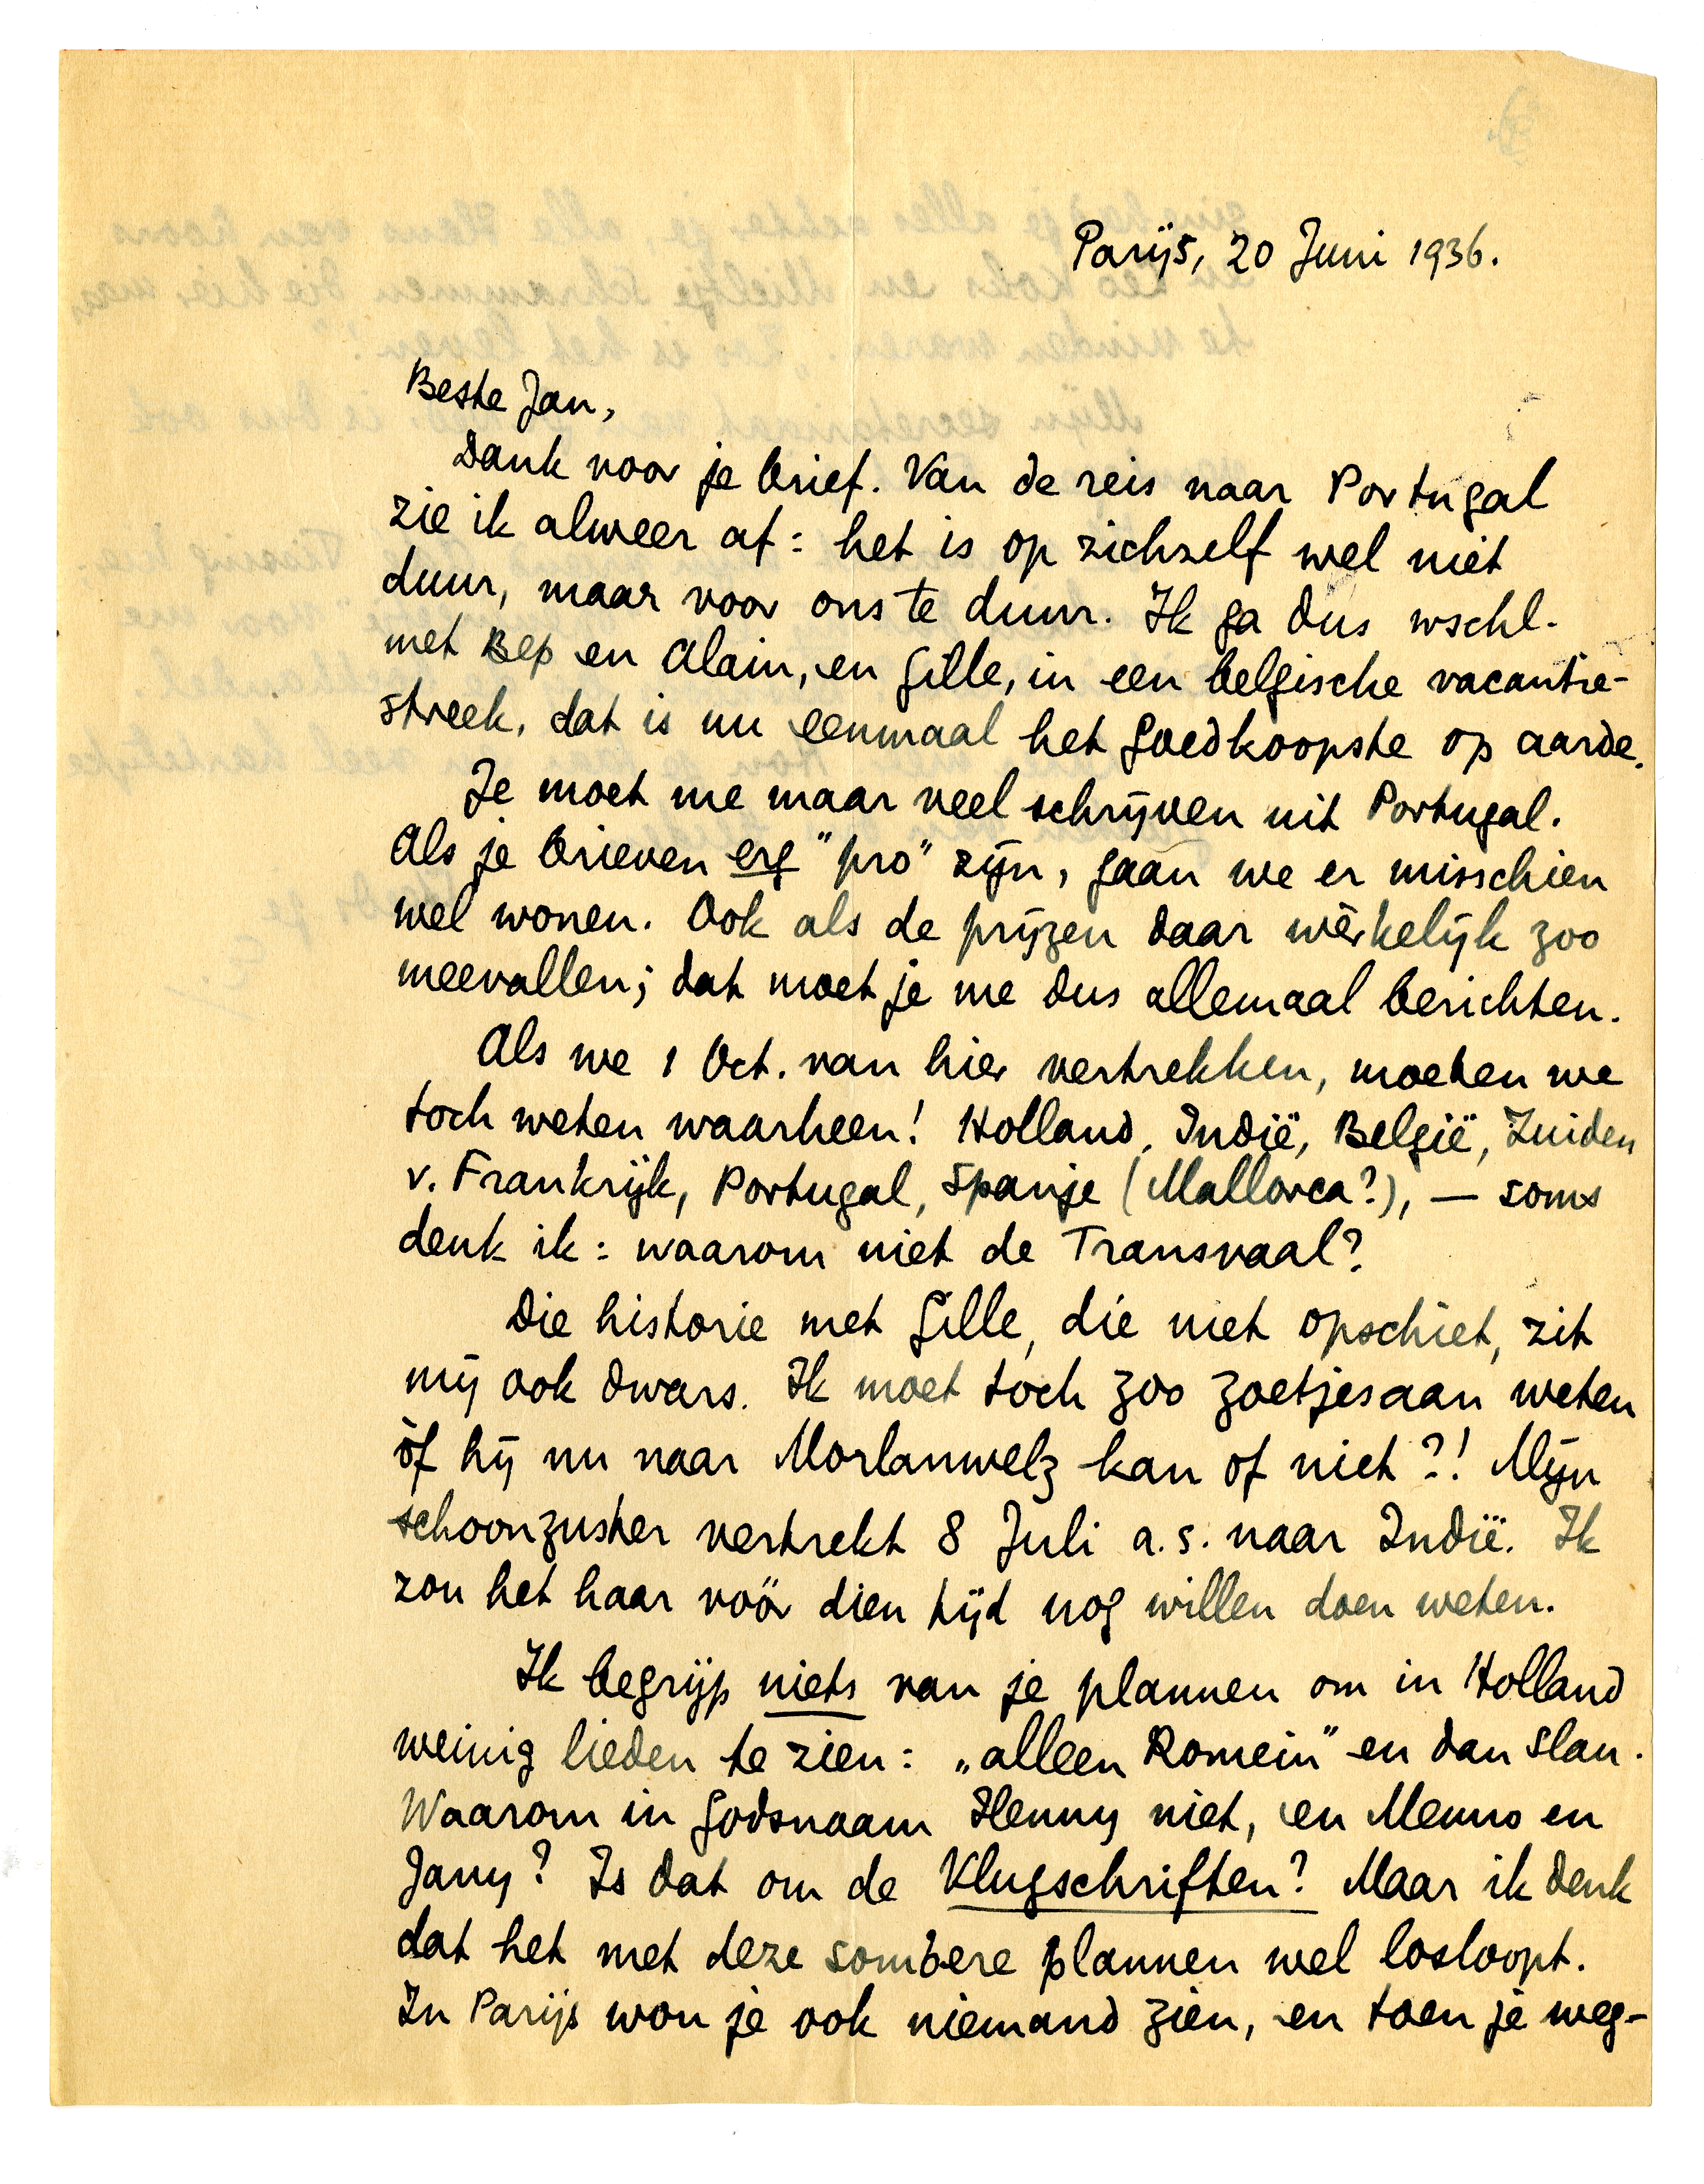 Parijs, 20 Juni 1936.
Beste Jan,
Dank voor je brief. Van de reis naar Portugal
zie ik alweer af: het is op zichzelf wel niet
duur, maar voor ons te duur. Ik ga dus wschl.
met Bep en Alain, en Gille, in een belgische vacantie-
streek, dat is nu eenmaal het goedkoopste op aarde.
Je moet me maar veel schrijven uit Portugal.
Als je brieven erg "pro" zijn, gaan we er misschien
wel wonen. Ook als de prijzen daar wèrkelijk zoo
meevallen; dat moet je me dus allemaal berichten.
Als we 1 Oct. van hier vertrekken, moeten we
toch weten waarheen! Holland, Indië, België, Zuiden
v. Frankrijk, Portugal, Spanje (Mallorca?), — soms
denk ik: waarom niet de Transvaal?
Die historie met Gille, die niet opschiet, zit
mij ook dwars. Ik moet toch zoo zoetjesaan weten
òf hij nu naar Morlanwelz kan of niet?! Mijn
schoonzuster vertrekt 8 Juli a.s. naar Indië. Ik
zou het haar vóór dien tijd nog willen doen weten.
Ik begrijp niets van je plannen om in Holland
weinig lieden te zien: „alleen Romein" en dan Slau.
Waarom in godsnaam Henny niet, en Menno en
Jany? Is dat om de Vlugschriften? Maar ik denk
dat het met deze sombere plannen wel losloopt.
In Parijs wou je ook niemand zien, en toen je weg-